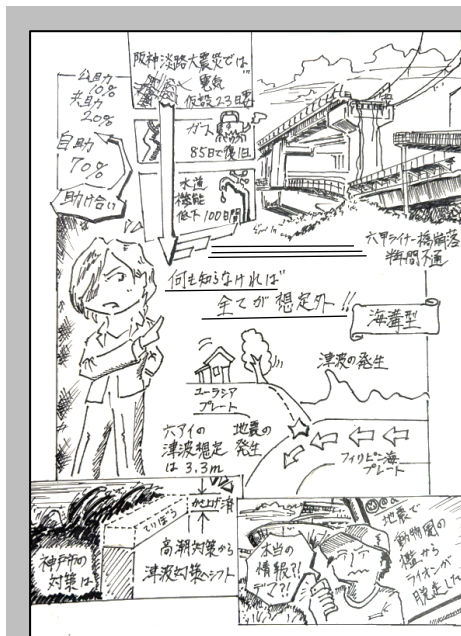 阪神淡路大震災では
電気
仮設23日間
ガス
85日で復旧
水道
機能
低下100日間
公助
10%
共助
20%
自助
70%
助け合い
六甲ライナー橋崩落
半年間不通
何も知らなければ
全てが想定外!!
海溝型
津波の発生
ユーラシア
プレート
六アイの
津波想定
は3.3m
地震の
発生
フィリピン海
プレート
かさ上げ済
ていぼう
神戸市の
対策は
高潮対策から
津波対策へシフト
本当の
情報?!
デマ?!
地震で
動物園の
檻から
ライオンが
脱走した